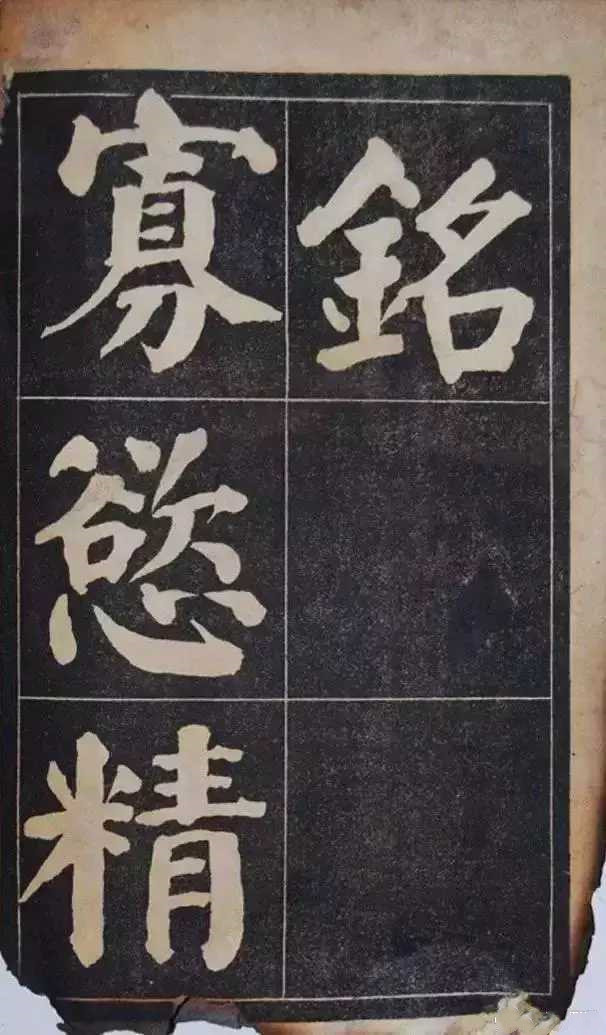 銘
寡慾精